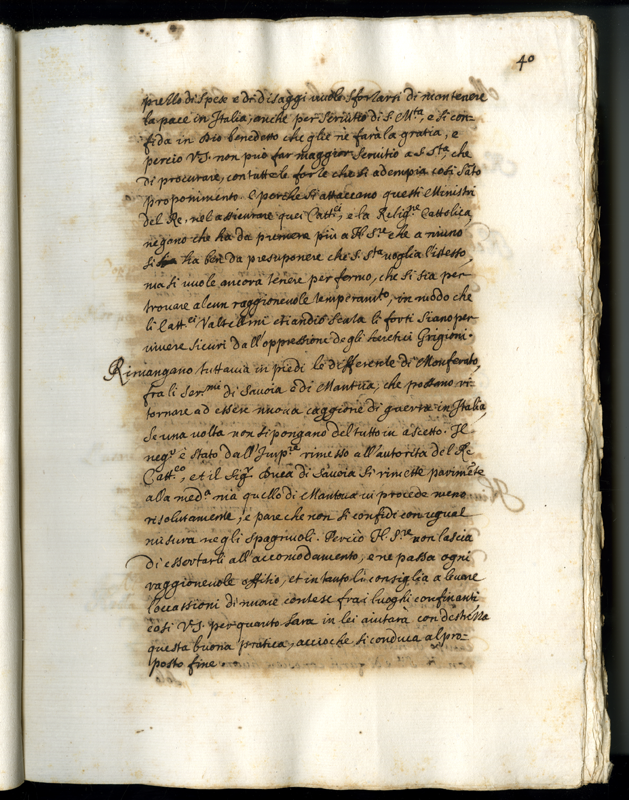 40
prezzo di spese e di disaggi vuole sforzarsi di mantenere
la pace in Italia, anche per servitio di S. M.ta, e si con-
fida in Dio benedetto che glie ne farà la gratia, e
perciò V.S. non può far maggior servitio a S. S.ta, che
di procurare, con tutte le forze che si adempia così sato
proponimento. E perche si attaccano questi Ministri
del Re, nel assicurare quei Catt.ci, e la Relig.ne Cattolica,
negano che ha da premere più a N. S.re che a niuno
si ha ben da presuponere che S. S.ta voglia l'istesso,
ma si vuole ancora tenere per fermo, che si sia per
trovare alcun raggionevole temperam.to, in modo che
li Catt.ci Valtellini etiandio senza li forti siano per
vivere sicuri dall'oppressione degli heretici Grigioni.
Rimangano tuttavia in piedi le differenze di Monferato,
fra li Ser.mi di Savoia e di Mantua, che possano ri-
tornare ad essere nuova caggione di guerra in Italia,
se una volta non si pongano del tutto in assetto. Il
neg.o è stato dall'Imp.re rimesso all'autorità del Re
Catt.co, et il Sig.r Duca di Savoia si rimette parimente
alla med.a mà quello di Mantova vi procede meno
risolutamente, e pare che non si confidi con ugual
misura negli Spagnuoli. Perciò N. S.re non lascia
di essortarli all'accomodamento, e ne passa ogni
raggionevole offitio, et in tanto li consiglia a levare
l'occassioni di nuove contese frai luoghi confinanti
così V.S. per quanto sarà in lei aiutarà con destrezza
questa buona pratica, acciochè si conduca al pro-
posto fine.